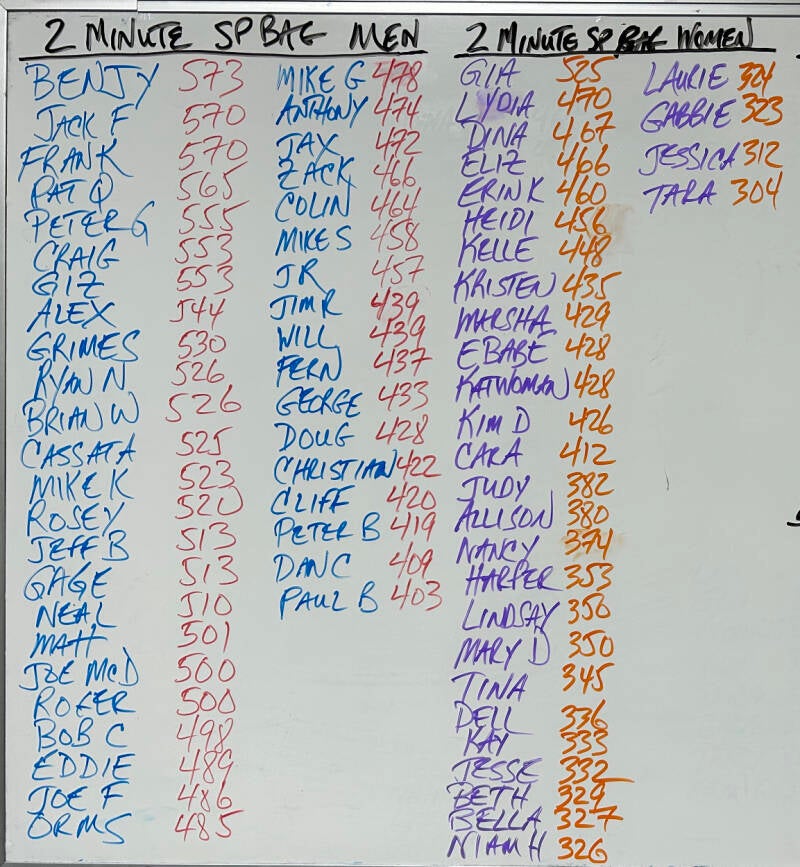 2 MINUTE SP BAG MEN
BENJY 573
JACK F 570
FRANK 570
PAT Q 565
PETER G 555
CRAIG 553
GIZ 553
ALEX 544
GRIMES 530
RYAN N 526
BRIAN W 526
CASSATA 525
MIKE K 523
ROSEY 520
JEFF B 513
GAGE 513
NEAL 510
MATT 501
JOE McD 500
ROGER 500
BOB C 498
EDDIE 489
JOE F 486
ORMS 485
MIKE G 478
ANTHONY 474
JAY 472
ZACK 466
COLIN 464
MIKE S 458
JR 457
JIM R 439
WILL 439
FERN 437
GEORGE 433
DOUG 428
CHRISTIAN 422
CLIFF 420
PETER B 419
DAN C 409
PAUL B 403
2 MINUTE SP BAG WOMEN
GIA 525
LYDIA 470
DINA 467
ELIZ 466
ERIN K 460
HEIDI 456
KELLE 448
KRISTEN 435
MARSHA 429
EBABE 428
KATWOMAN 428
KIM D 426
CARA 412
JUDY 382
ALLISON 380
NANCY 374
HARPER 353
LINDSAY 350
MARY D 350
TINA 345
DELL 336
KAY 333
JESSE 332
BETH 329
BELLA 327
NIAMH 326
LAURIE 324
GABBIE 323
JESSICA 312
TARA 304